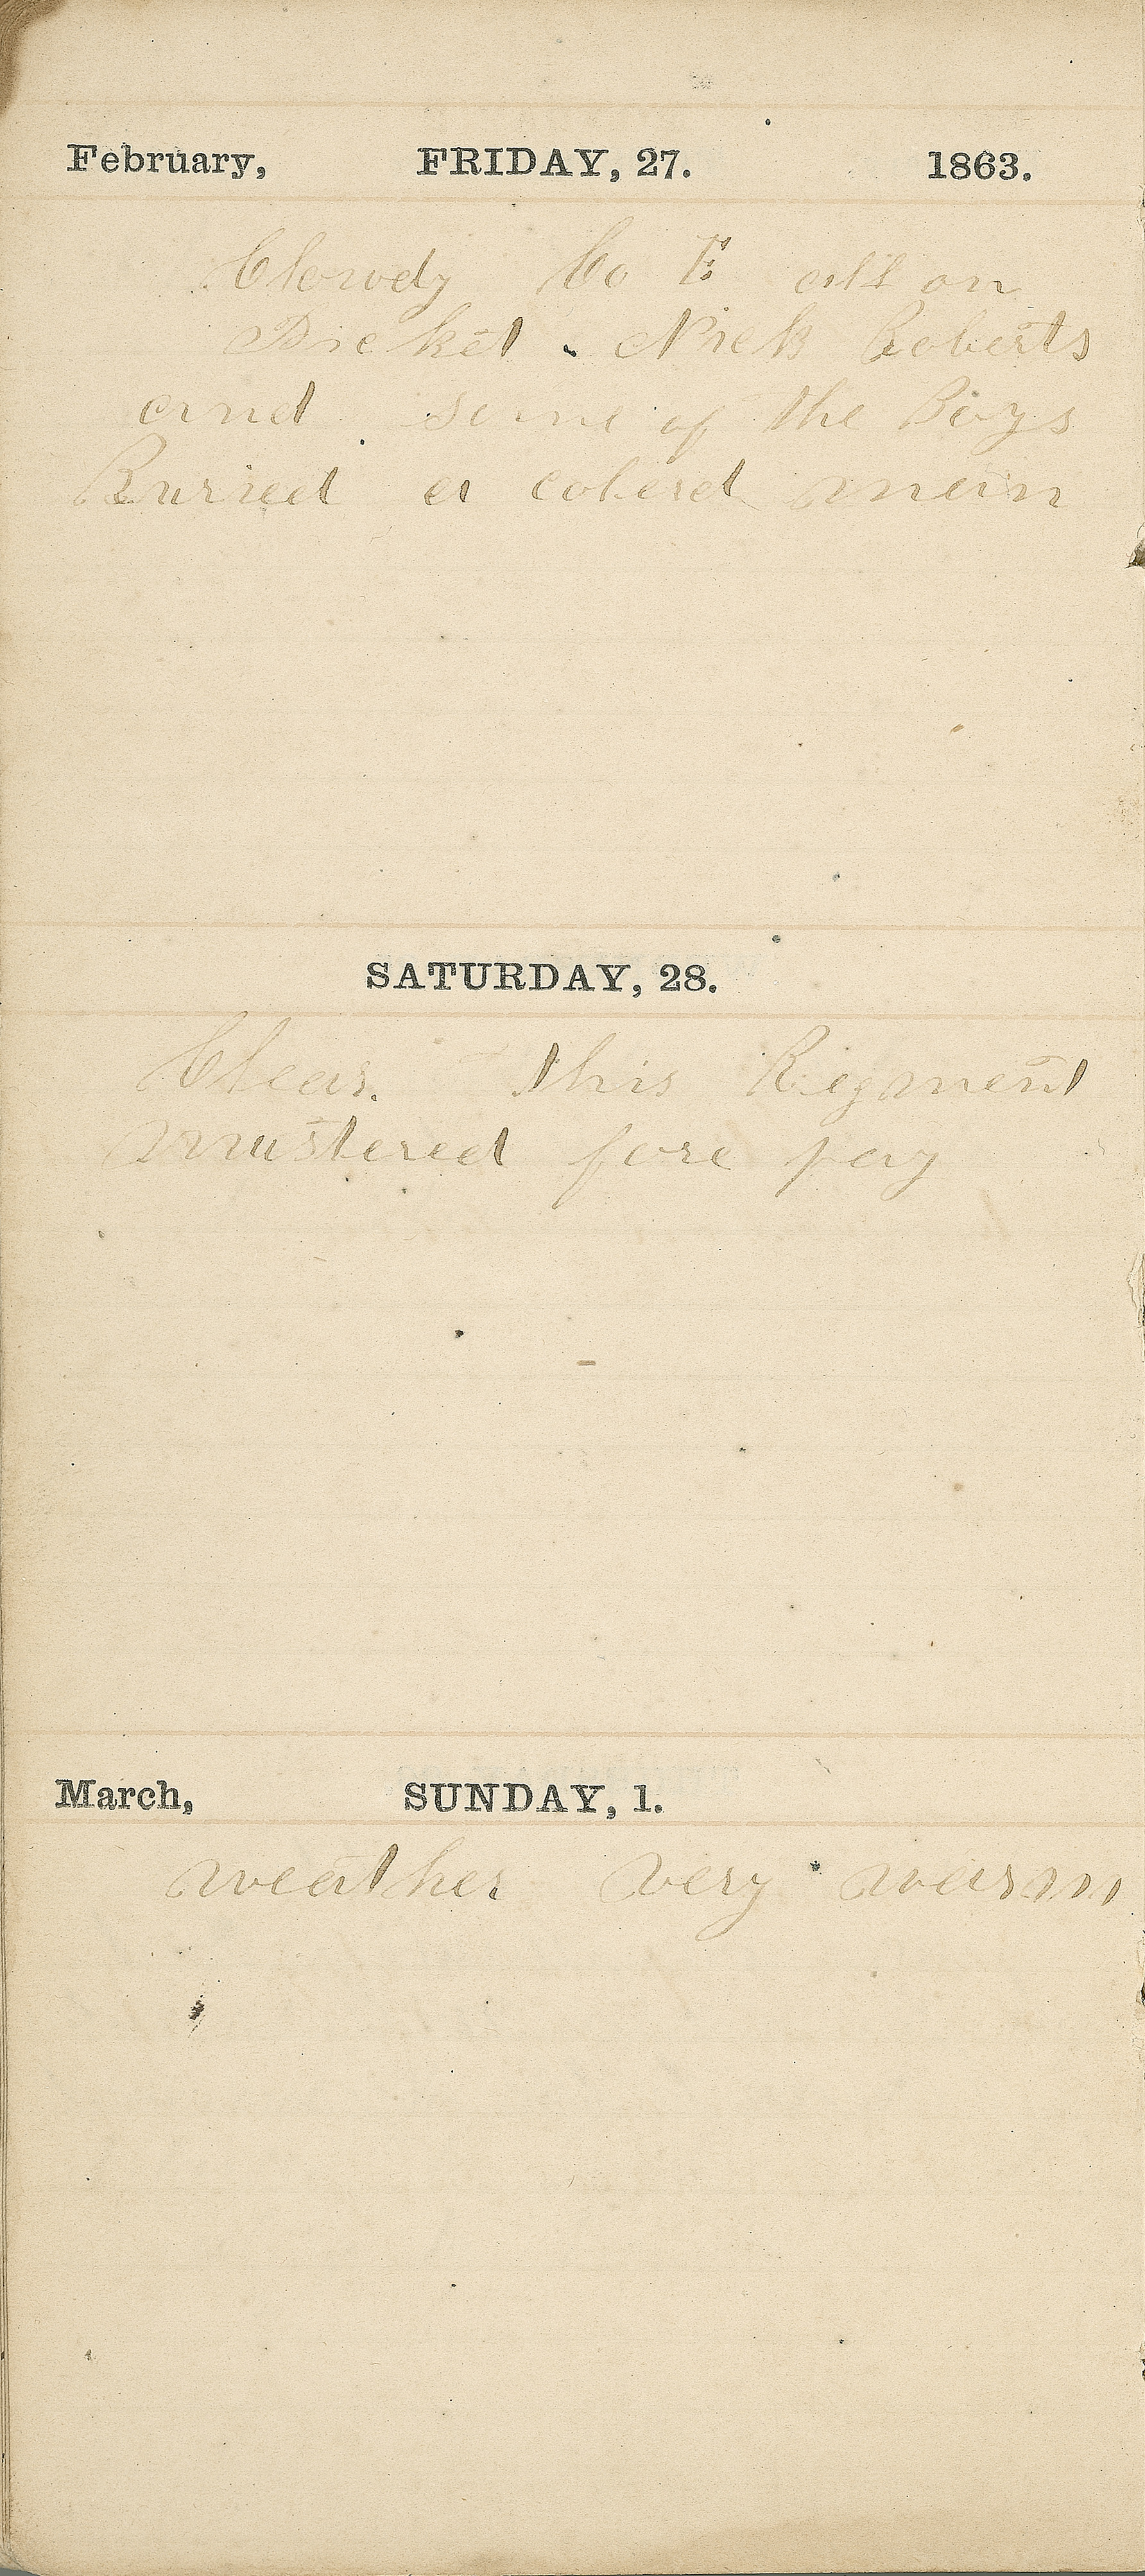 February, FRIDAY, 27. 1863.
Clowdy Co E all on
Picket. Nick Roberts
and some of the Boys
Buried a colerd man
SATURDAY, 28.
Clear. this Regment
mustered fore pay
March, SUNDAY, 1.
weather very warm